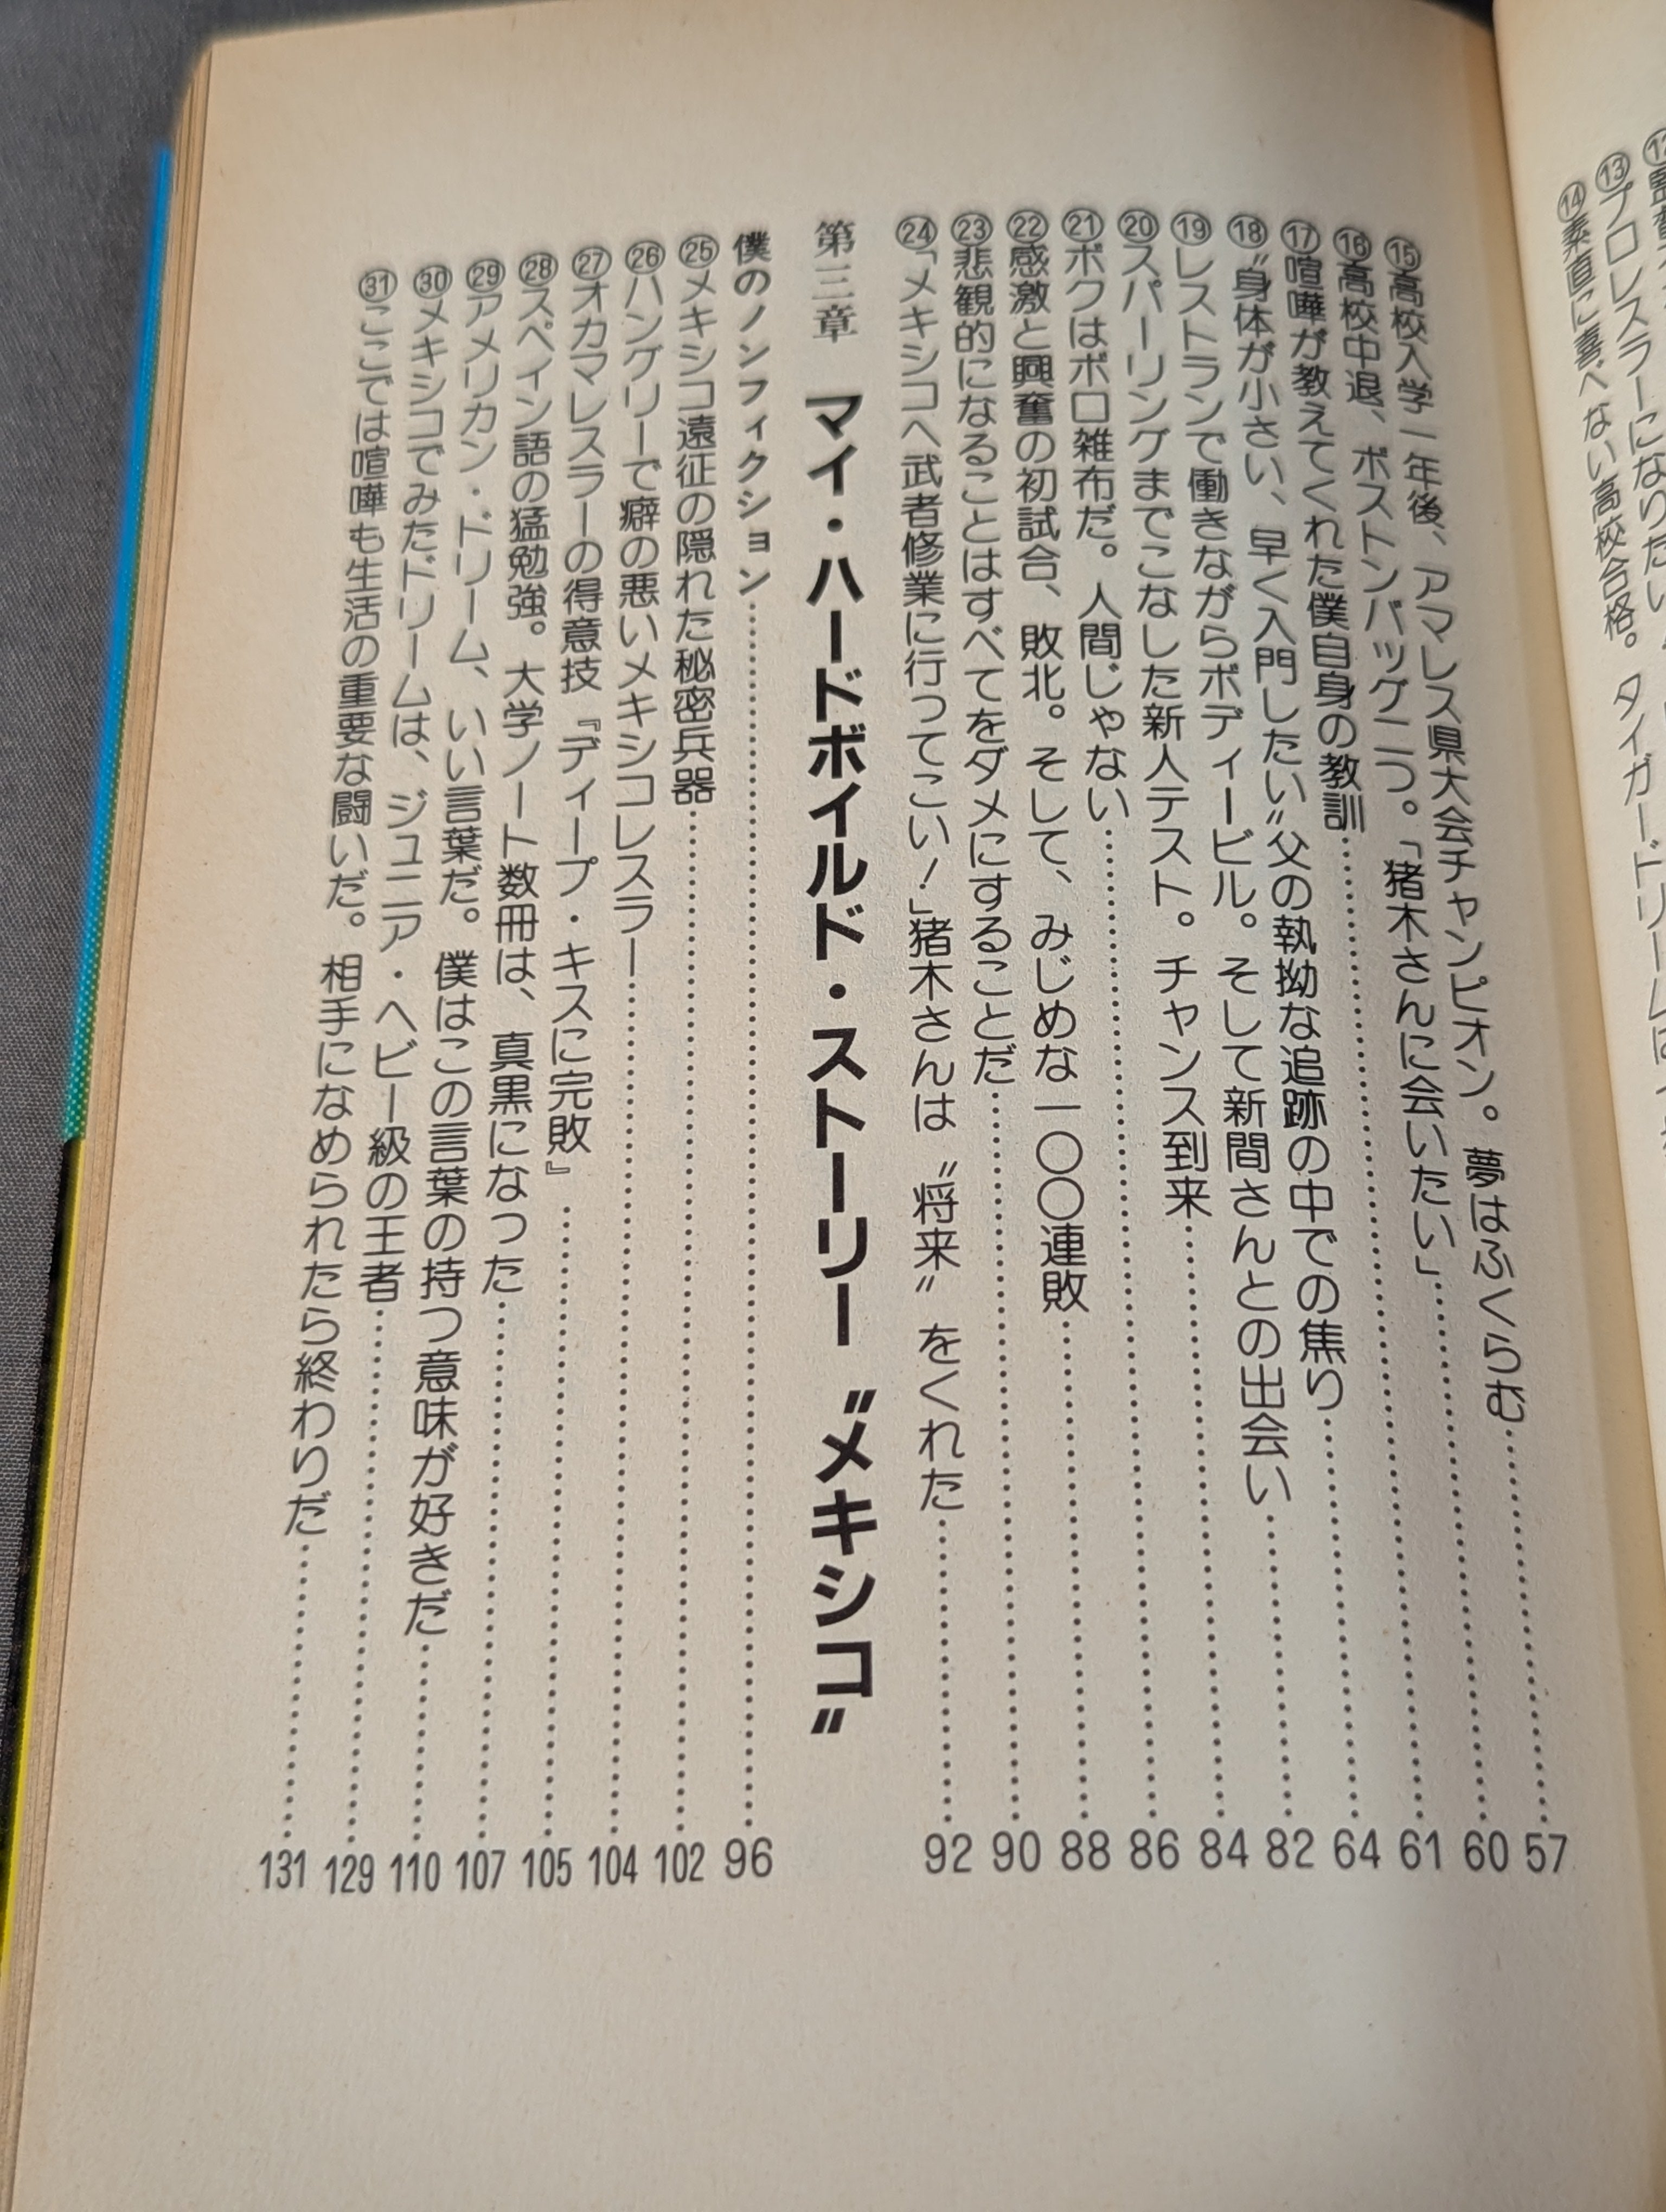 ⑬プロレスラーになりたい
⑭素直に喜べない高校合格。タイガー・ドリームは
⑮高校入学一年後、アマレス県大会チャンピオン。夢はふくらむ……57
⑯高校中退、ボストンバッグ二つ。「猪木さんに会いたい」……60
⑰喧嘩が教えてくれた僕自身の教訓……61
⑱〝身体が小さい、早く入門したい〟父の執拗な追跡の中での焦り……64
⑲レストランで働きながらボディービル。そして新間さんとの出会い……82
⑳スパーリングまでこなした新人テスト。チャンス到来……84
㉑ボクはボロ雑布だ。人間じゃない……86
㉒感激と興奮の初試合、敗北。そして、みじめな一〇〇連敗……88
㉓悲観的になることはすべてをダメにすることだ……90
㉔「メキシコへ武者修業に行ってこい!」猪木さんは〝将来〟をくれた……92
第三章 マイ・ハードボイルド・ストーリー〝メキシコ〟
僕のノンフィクション……96
㉕メキシコ遠征の隠れた秘密兵器……102
㉖ハングリーで癖の悪いメキシコレスラー……104
㉗オカマレスラーの得意技『ディープ・キスに完敗』……105
㉘スペイン語の猛勉強。大学ノート数冊は、真黒になった……107
㉙アメリカン・ドリーム、いい言葉だ。僕はこの言葉の持つ意味が好きだ……110
㉚メキシコでみたドリームは、ジュニア・ヘビー級の王者……129
㉛ここでは喧嘩も生活の重要な闘いだ。相手になめられたら終わりだ……131